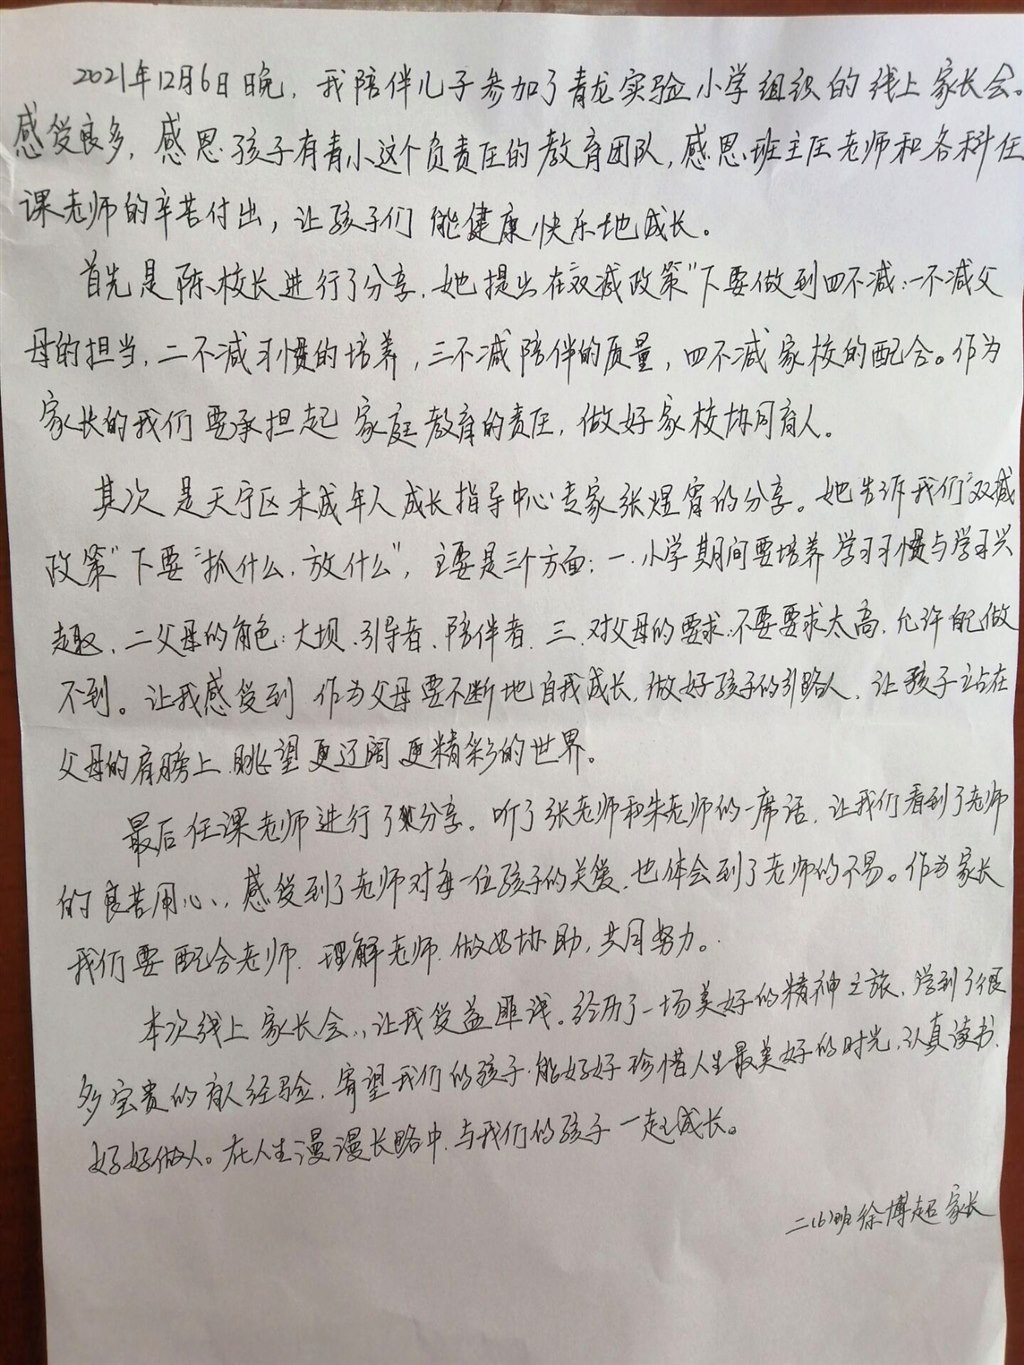 2021年12月6日晚，我陪伴儿子参加了青龙实验小学组织的线上家长会。
感受良多，感恩孩子有青小这个负责任的教育团队，感恩班主任老师和各科任
课老师的辛苦付出，让孩子们能健康快乐地成长。
首先是陈校长进行了分享，她提出在"双减政策"下要做到四不减：一不减父
母的担当，二不减习惯的培养，三不减陪伴的质量，四不减家校的配合。作为
家长的我们要承担起家庭教育的责任，做好家校协同育人。
其次是天宁区未成年人成长指导中心专家张煜宵的分享。她告诉我们"双减
政策"下要"抓什么，放什么"，主要是三个方面：一.小学期间要培养学习习惯与学习兴
趣，二父母的角色：大坝、引导者、陪伴者，三.对父母的要求：不要要求太高，允许做
不到。让我感受到作为父母要不断地自我成长，做好孩子的引路人，让孩子站在
父母的肩膀上眺望更辽阔更精彩的世界。
最后任课老师进行了分享。听了张老师和朱老师的一席话，让我们看到了老师
的良苦用心，感受到了老师对每一位孩子的关爱，也体会到了老师的不易。作为家长
我们要配合老师，理解老师，做好协助，共同努力。
本次线上家长会，让我受益匪浅。经历了一场美好的精神之旅，学到了很
多宝贵的育人经验，寄望我们的孩子能好好珍惜人生最美好的时光，认真读书，
好好做人。在人生漫漫长路中，与我们的孩子一起成长。
二(6)班徐博超家长